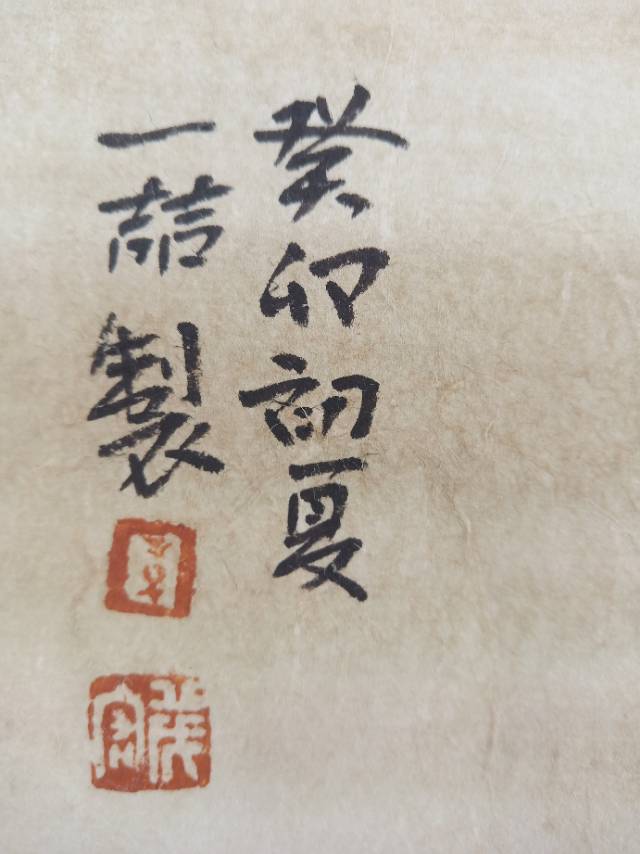 癸卯初夏
一喆製